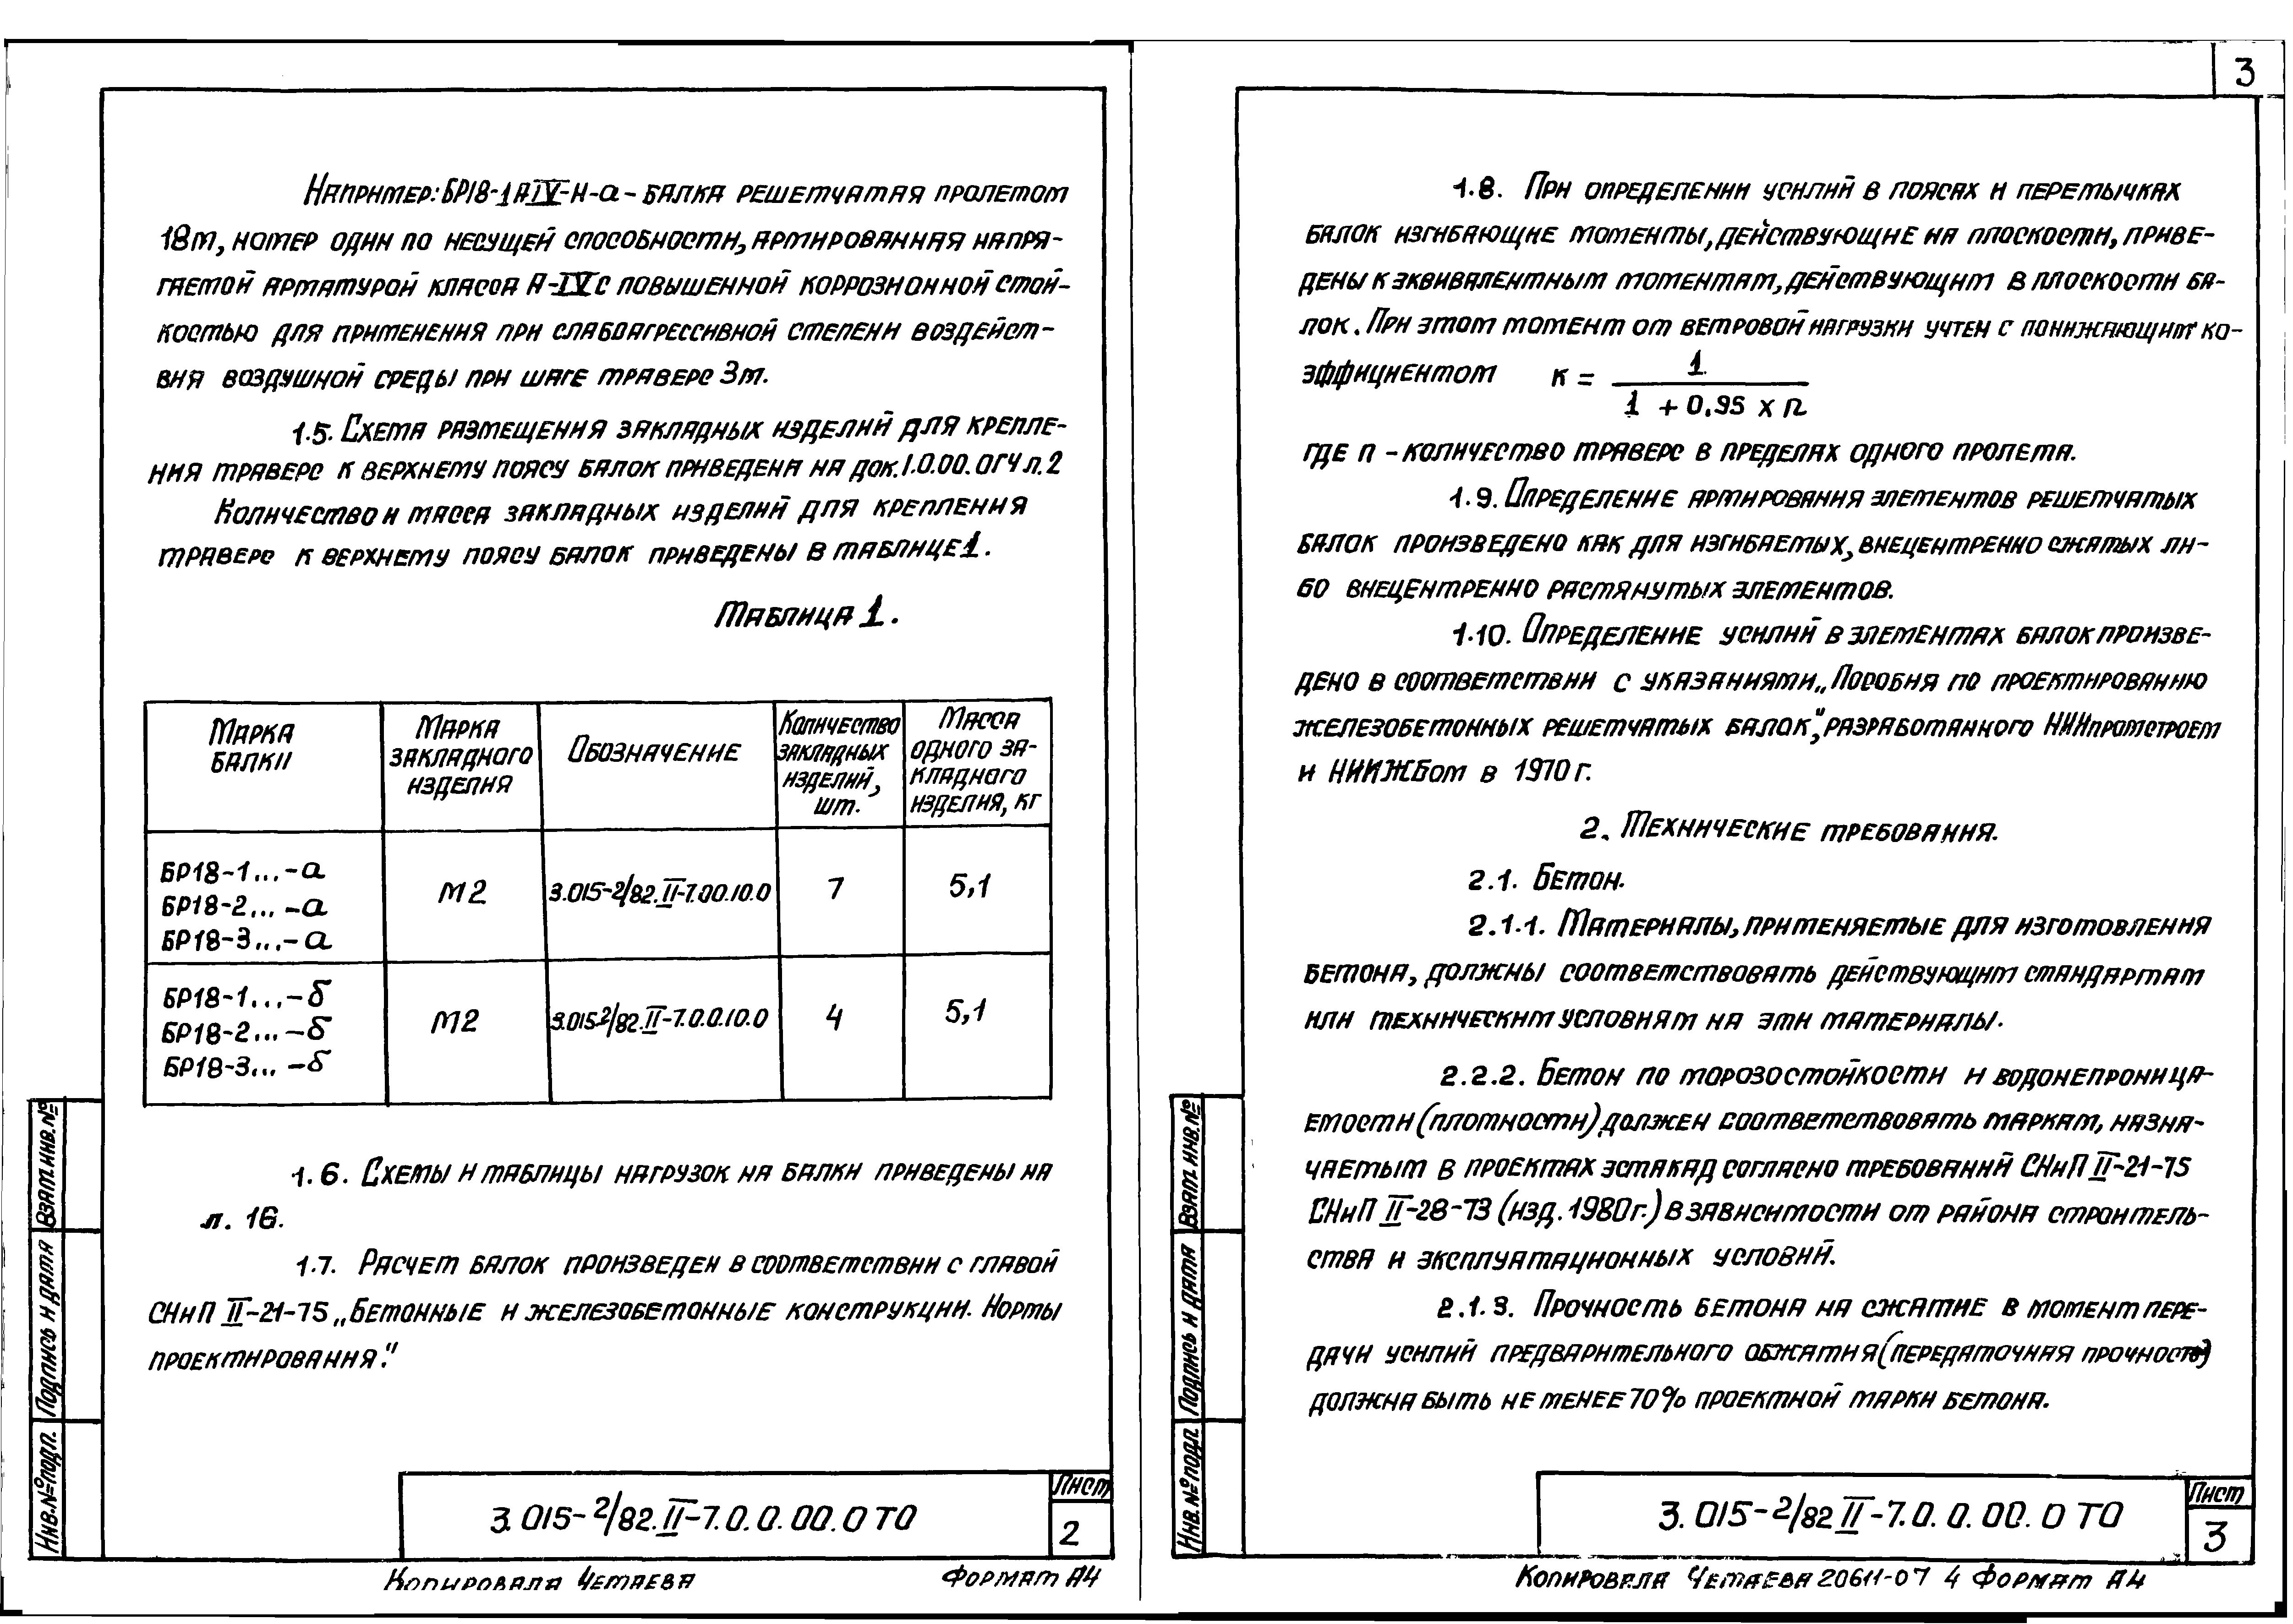 Например: БР18-1АIV-Н-а - балка решетчатая пролетом
18м, номер один по несущей способности, армированная напря-
гаемой арматурой класса А-IV с повышенной коррозионной стой-
костью для применения при слабоагрессивной степени воздейст-
вия воздушной среды при шаге траверс 3м.
1.5. Схема размещения закладных изделий для крепле-
ния траверс к верхнему поясу балок приведена на док. 1.0.00.0ГЧ л.2
Количество и масса закладных изделий для крепления
траверс к верхнему поясу балок приведены в таблице 1.
Таблица 1.
Марка балки | Марка закладного изделия | Обозначение | Количество закладных изделий, шт. | Масса одного за-кладного изделия, кг
БР18-1...-а
БР18-2...-а
БР18-3...-а
М2 3.015-2/82.II-7.00.10.0 7 5,1
БР18-1...-б
БР18-2...-б
БР18-3...-б
М2 3.015-2/82.II-7.0.0.10.0 4 5,1
1.6. Схемы и таблицы нагрузок на балки приведены на
л. 16.
1.7. Расчет балок произведен в соответствии с главой
СНиП II-21-75 „Бетонные и железобетонные конструкции. Нормы
проектирования."
3.015-2/82.II-7.0.0.00.0 ТО
Лист
2
Инв.№подл. Подпись и дата Взам. инв.№
Копировала Четаева Формат А4
3
1.8. При определении усилий в поясах и перемычках
балок изгибающие моменты, действующие из плоскости, приве-
дены к эквивалентным моментам, действующим в плоскости ба-
лок. При этом момент от ветровой нагрузки учтен с понижающим ко-
эффициентом к = 1 / (1 + 0.95 х n)
где n - количество траверс в пределах одного пролета.
1.9. Определение армирования элементов решетчатых
балок произведено как для изгибаемых, внецентренно сжатых ли-
бо внецентренно растянутых элементов.
1.10. Определение усилий в элементах балок произве-
дено в соответствии с указаниями „Пособия по проектированию
железобетонных решетчатых балок", разработанного НИИпромстроем
и НИИЖБом в 1970 г.
2. Технические требования.
2.1. Бетон.
2.1.1. Материалы, применяемые для изготовления
бетона, должны соответствовать действующим стандартам
или техническим условиям на эти материалы.
2.2.2. Бетон по морозостойкости и водонепроница-
емости (плотности) должен соответствовать маркам, назна-
чаемым в проектах эстакад согласно требований СНиП II-21-75
СНиП II-28-73 (изд. 1980г.) в зависимости от района строитель-
ства и эксплуатационных условий.
2.1.3. Прочность бетона на сжатие в момент пере-
дачи усилий предварительного обжатия (передаточная прочность)
должна быть не менее 70% проектной марки бетона.
3.015-2/82 II-7.0.0.00.0 ТО
Лист
3
Инв.№подл. Подпись и дата Взам. инв.№
Копировала Четаева 20611-07 4 Формат А4